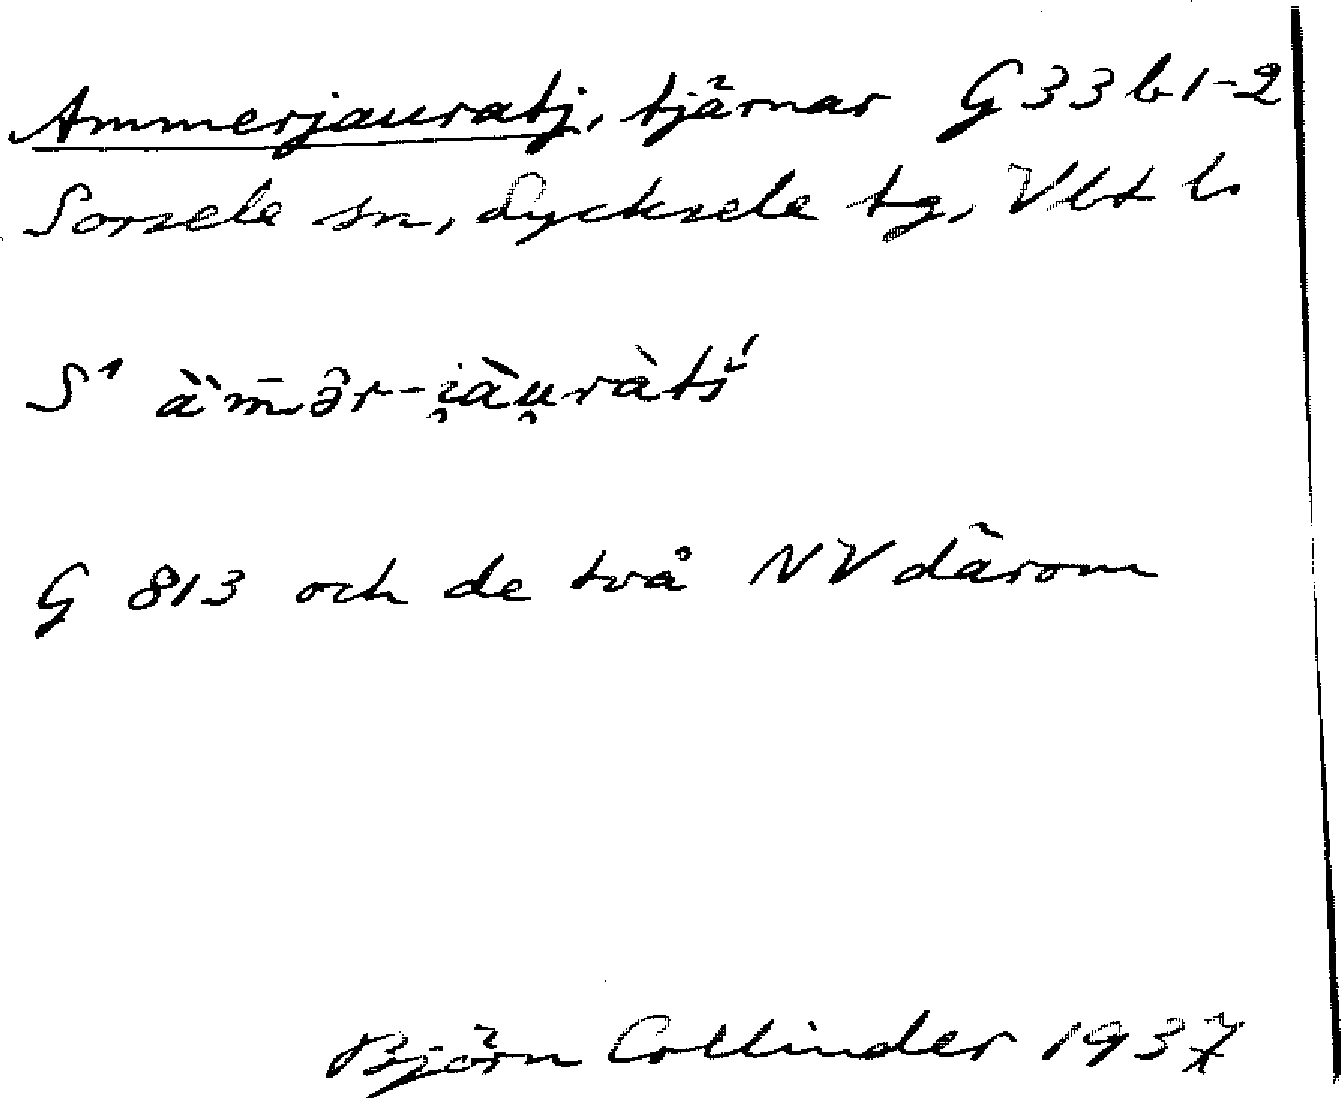 Ammerjauratj, tjärnar G 33 b 1-2
Sorsele sn, Lycksele tg, Vbt l.
S¹ ȁm̄ə̑r-i̯àu̯ràtš́
G 813 och de två NV därom
Björn Collinder 1937